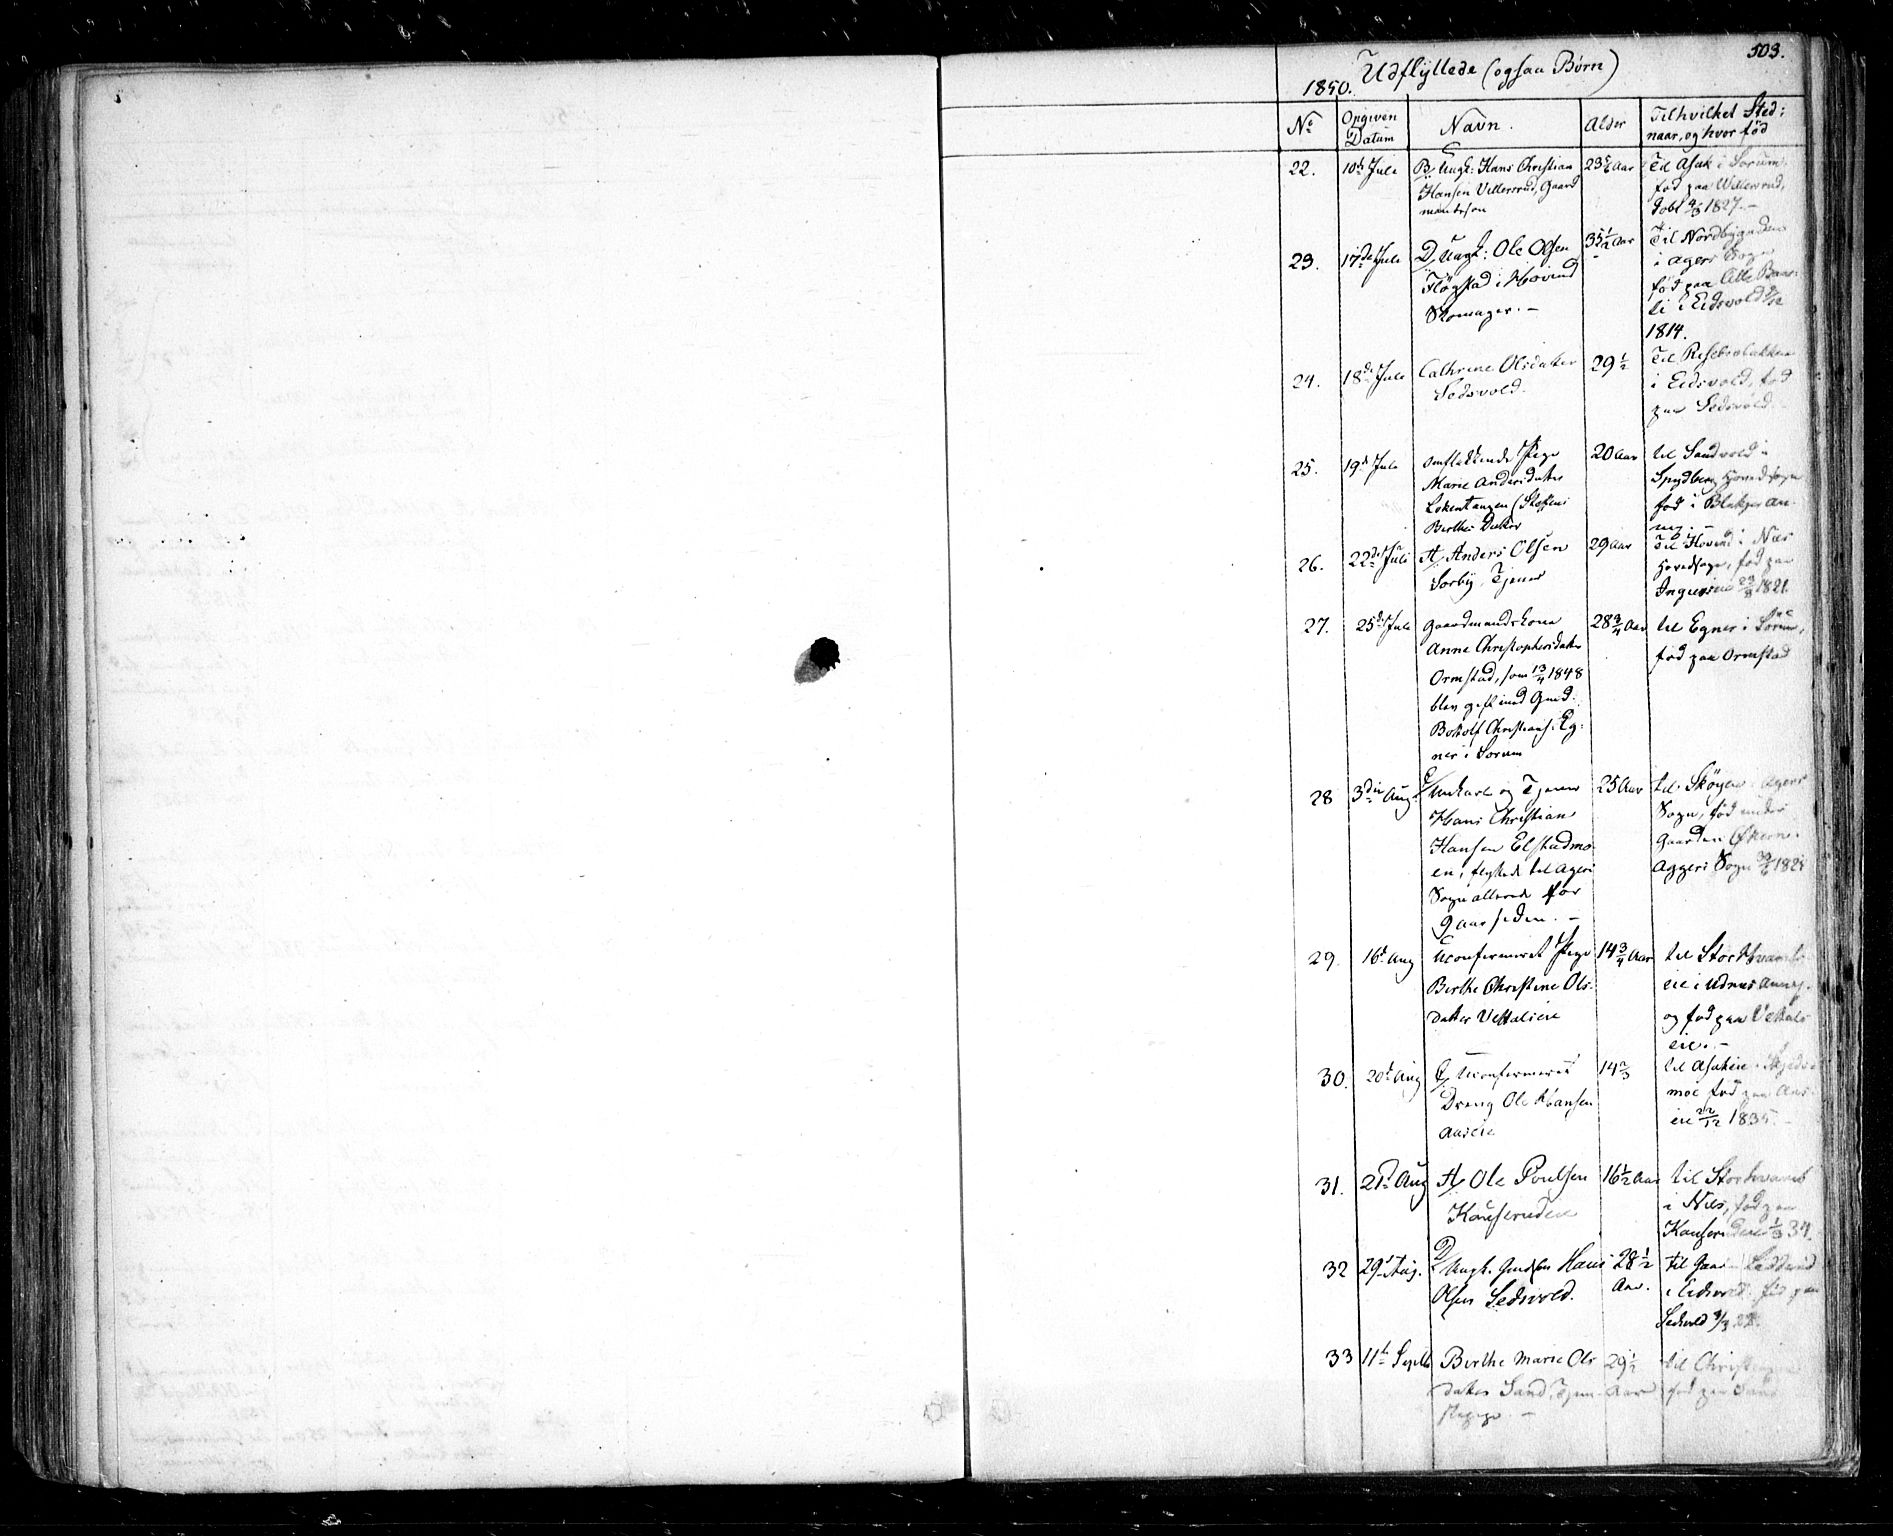 503.
Udflyttede (ogsaa Børn)
1850.
No Opgiven Datum Navn. Alder Til hvilket Sted; naar, og hvor fød
22. 10de Juli
Ungk: Hans Christian
Hansen Vettersrud, Gaard
mandssøn
23 5/6 Aar
Til Asak i Sørum
fød paa
døbt 1827.
23. 17de Juli
D/ Ungk: Ole Olsen
Fløgstad i Hovind
Skomager. -
35 1/2 Aar
Til Nordbygaden
i Agers Sogn
fød paa lille
li i Eidsvold
1814.
24. 18de Juli
Cathrine Olsdatter
Sedsvold.
29 1/2
Til
i Eidsvold, fød
paa Sedsvold.
25. 19de Juli
omflakkende Pige
Marie Andersdatter
Lokentangen (Steffens
Berthes Datter
20 Aar
til Sandvold i
Spydberg Hovedsogn
fød i Blakjer An-
nex. -
26. 22de Juli
A/ Anders Olsen
Sorby, Tjener
29 Aar
Til Hovind i Næs
Hovedsogn, fød paa
1821
27. 25de Juli
Gaardmandskone
Anne Christophersdatter
Ormstad, som 13/4 1848
blev gift med Gmd:
Botolf Christians: Eg-
ner i Sørum
28 3/4 Aar
til Egner i Sørum,
fød paa Ormstad
28 3die Aug.
Unkarl og Tjener
Hans Christian
Hansen Elstadmo-
en, flyttede til Agers
Sogn allerede for
9 Aar siden. -
25 Aar
til Skøyen Agers
Sogn, fød under
Gaarden Økern i
Aggers Sogn
29. 16de Aug
Uconfirmeret Pige
Berthe Christine Ols-
datter Vettaleie
14 3/4 Aar
til Storhvamb-
eie i Udnæs Annex.
og fød paa Vettals
eie. -
30. 20de Aug
Uconfirmeret
Dreng Ole Hansen
Aaseie
14 2/3
til Asakeie i Skjeds-
moe fød paa Aas-
eie 22/12 1835. -
31. 21de Aug
A/ Ole Poulsen
Kauserudeie
16 1/2 Aar
til Storhvamb
i Næs, fød paa
Kauserudeie 1/3 34.
32 29de Aug.
D/ Ungk. Hans
Olsen Sedsvold.
28 1/2
Aar.
til
i Eidsvold. fød paa
Sedsvold
33 11te Septb
Berthe Marie Ols
datter Sand, Tjene-
stepige. -
29 1/2
Aar
til
fød paa Sand